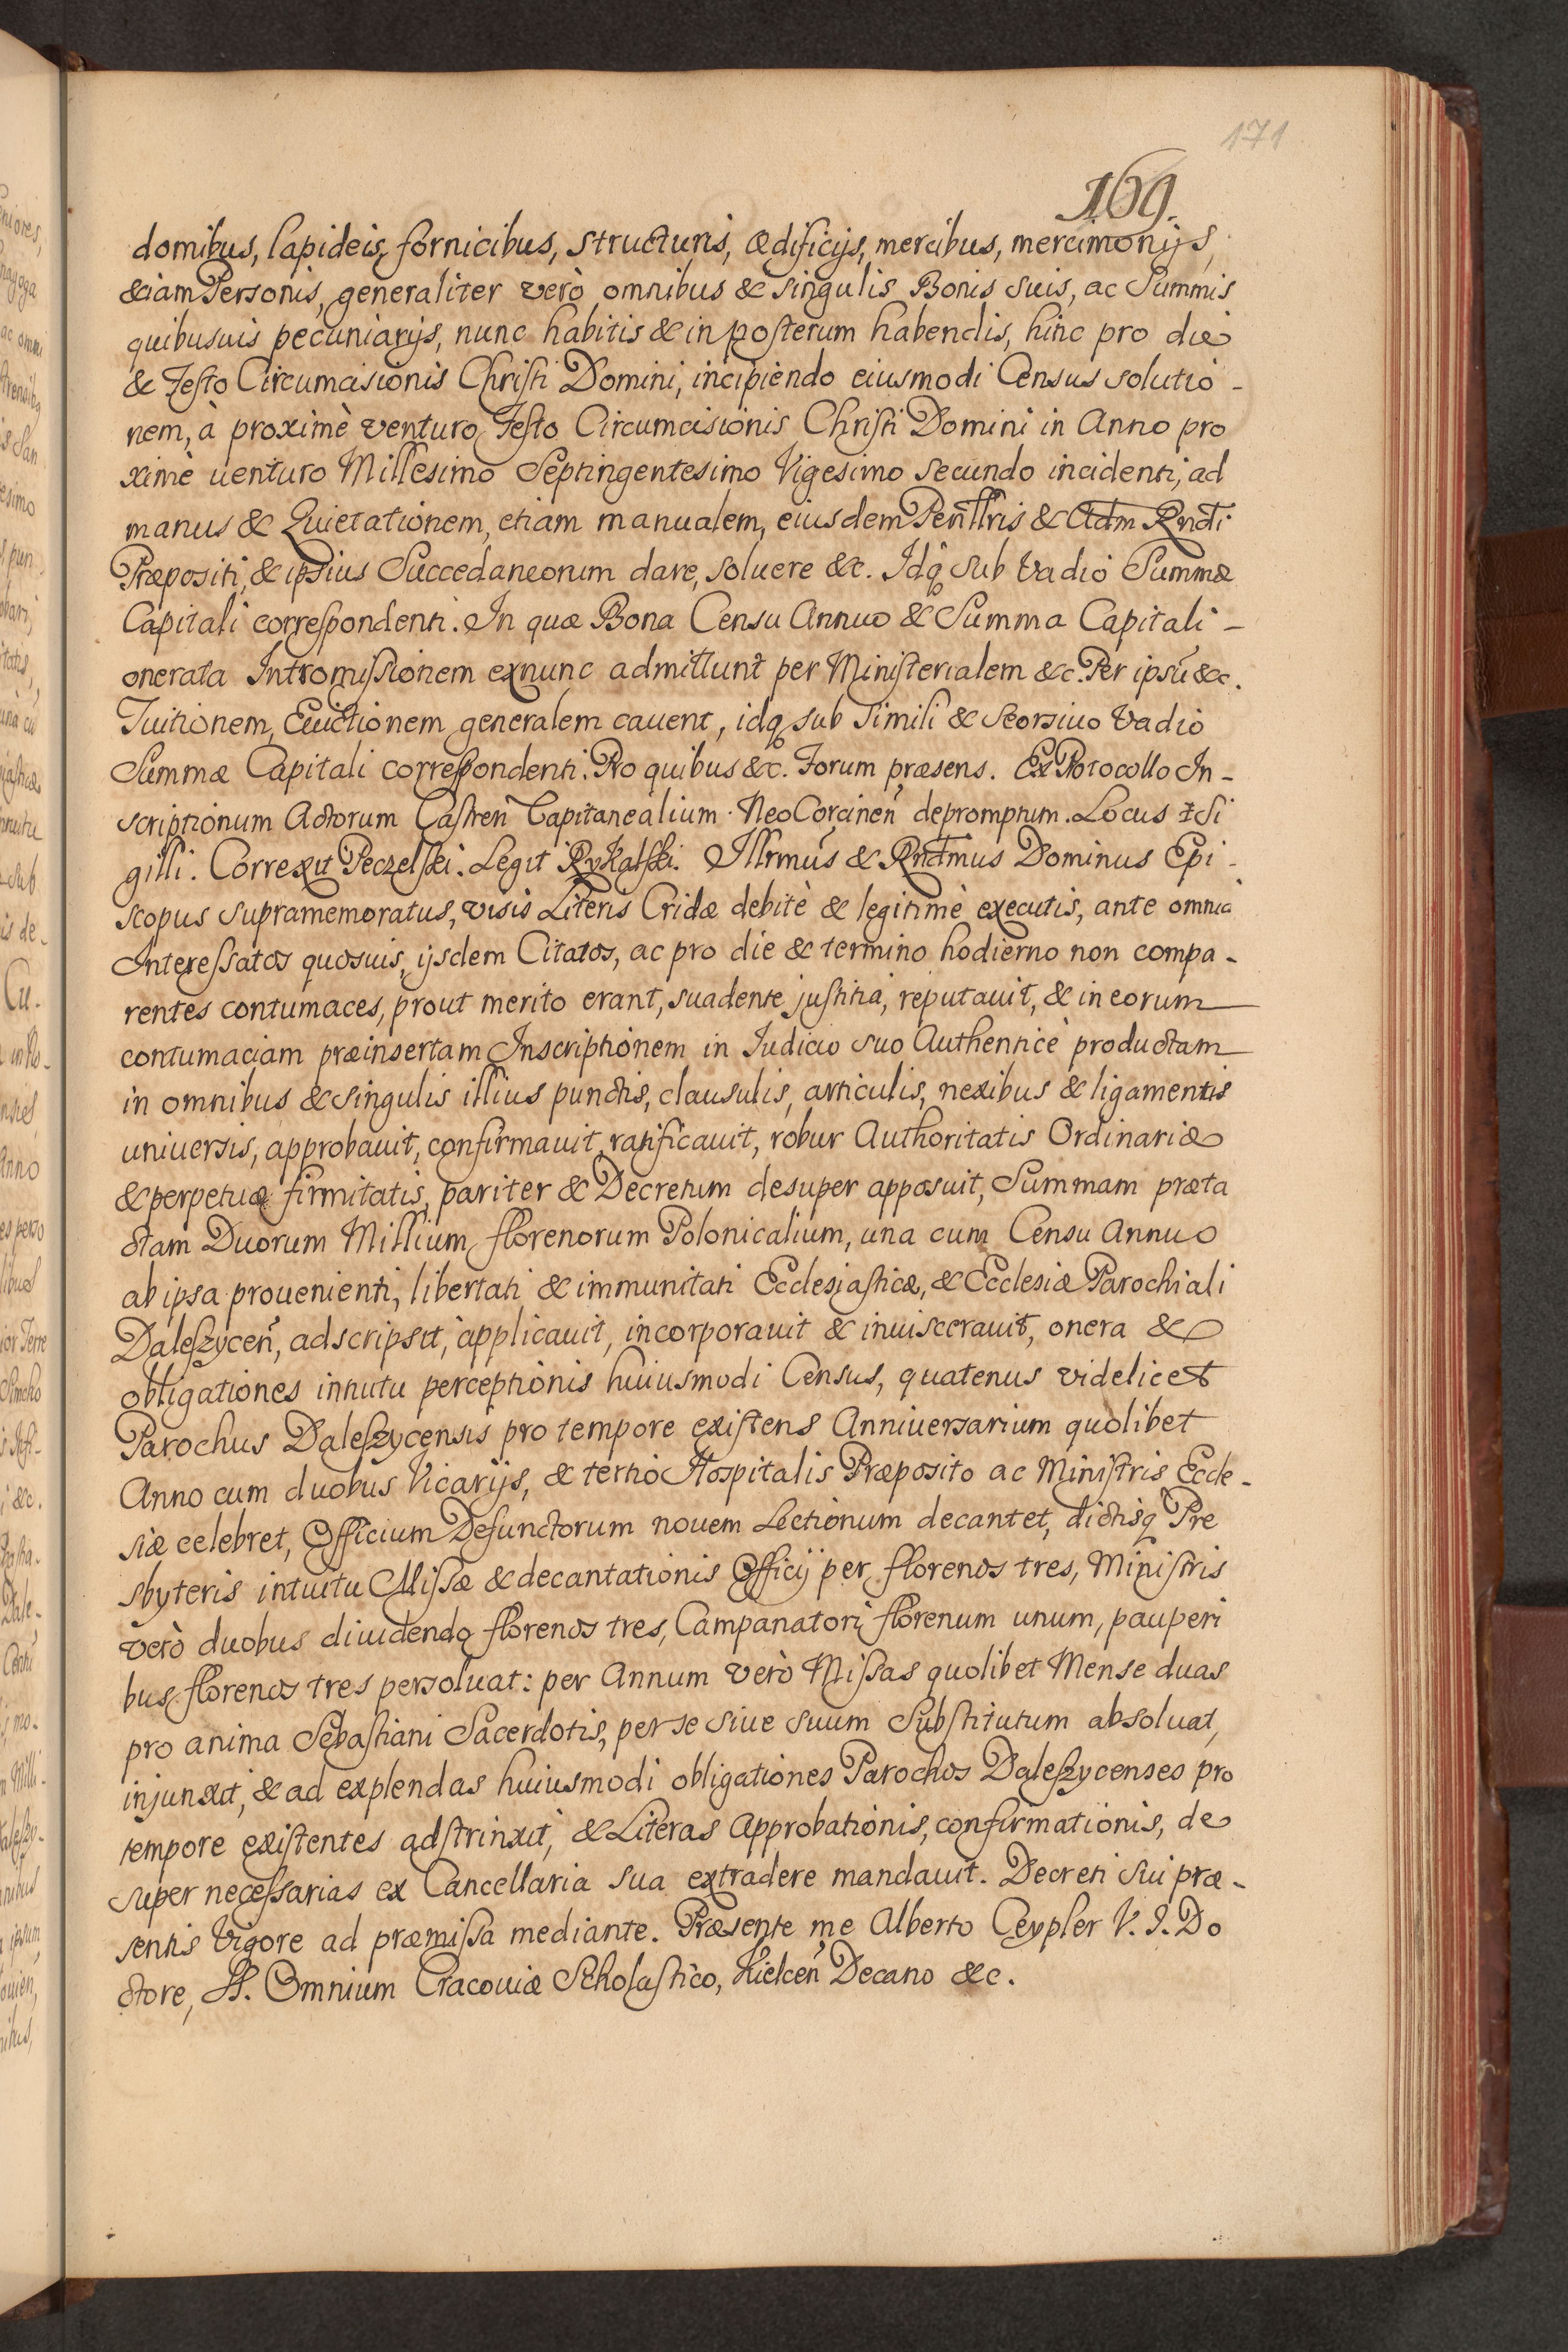 171
169.
domibus, lapideis, fornicibus, structuris, ædificijs, mercibus, mercimonijs,
etiam Personis, generaliter verò omnibus & singulis Bonis suis, ac Summis
quibusuis pecuniarijs, nunc habitis & in posterum habendis, hinc pro die
& Festo Circumcisionis Christi Domini, incipiendo eiusmodi Census solutio-
nem, à proximè venturo Festo Circumcisionis Christi Domini in Anno pro
ximè uenturo Millesimo Septingentesimo Vigesimo secundo incidenti, ad
manus & Quietationem, etiam manualem, eiusdem Perillris & Adm Rndi
Præpositi, & ipsius Succedaneorum dare, soluere &c. Idq̃ sub Vadio Summæ
Capitali correspondenti. In quæ Bona Censu Annuo & Summa Capitali-
onerata Intromissionem exnunc admittunt per Ministerialem &c. Per ipsũ &c.
Tuitionem, Euictionem generalem cauent, idq̃ sub simili & seorsiuo Vadio
Summæ Capitali correspondenti. Pro quibus &c. Forum præsens. Ex Protocollo In-
scriptionum Actorum Castreñ Capitanealium NeoCorcineñ depromptum. Locus Si
gilli. Correxit Peczelski. Legit Rykalski. Illrmus & Rndmus Dominus Epi-
scopus supramemoratus, visis Literis Cridæ debitè & legitimè executis, ante omnia
Interessatos quosuis, ijsdem Citatos, ac pro die & termino hodierno non compa-
rentes contumaces, prout merito erant, suadente justitia, reputauit, & in eorum
contumaciam præinsertam Inscriptionem in Iudicio suo Authenticè productam
in omnibus & singulis illius punctis, clausulis, articulis, nexibus & ligamentis
uniuersis, approbauit, confirmauit, ratificauit, robur Authoritatis Ordinariæ
& perpetuæ firmitatis, pariter & Decretum desuper apposuit, Summam præta
ctam Duorum Millium florenorum Polonicalium, una cum Censu Annuo
ab ipsa prouenienti, libertati & immunitati Ecclesiasticæ, & Ecclesiæ Parochiali
Daleszyceñ, adscripsit, applicauit, incorporauit & inuiscerauit, onera &
obligationes intuitu perceptionis huiusmodi Census, quatenus videlicet
Parochus Daleszycensis pro tempore existens Anniuersarium quolibet
Anno cum duobus Vicarijs, & tertio Hospitalis Præposito ac Ministris Eccle-
siæ celebret, Officium Defunctorum nouem Lectionum decantet, dictisq̃ Pre
sbyteris intuitu Missæ & decantationis Officij per florenos tres, Ministris
verò duobus diuidendo florenos tres, Campanatori florenum unum, pauperi
bus florenos tres persoluat: per Annum verò Missas quolibet Mense duas
pro anima Sebastiani Sacerdotis, per se siue suum Substitutum absoluat,
injunxit, & ad explendas huiusmodi obligationes Parochos Daleszycenses pro
tempore existentes adstrinxit, & Literas Approbationis, confirmationis, de
super necessarias ex Cancellaria sua extradere mandauit. Decreti sui præ-
sentis Vigore ad præmissa mediante. Præsente me Alberto Ceypler V. I. Do
ctore, SS. Omnium Cracouiæ Scholastico, Kielceñ Decano &c.